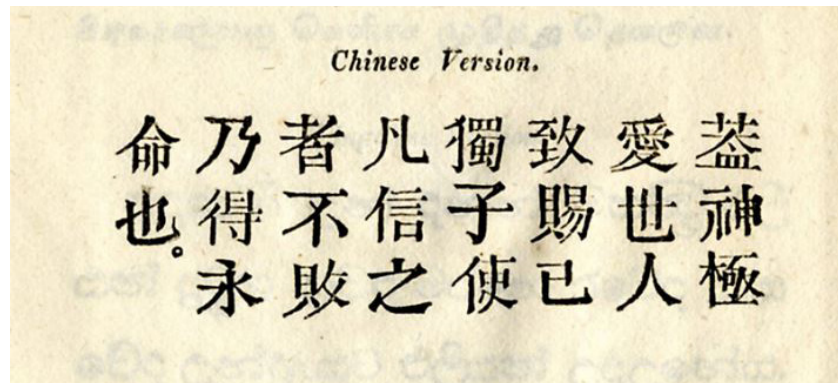 Chinese Version.
蓋神極
愛世人
致賜已
獨子使
凡信之
者不敗
乃得永
命也。